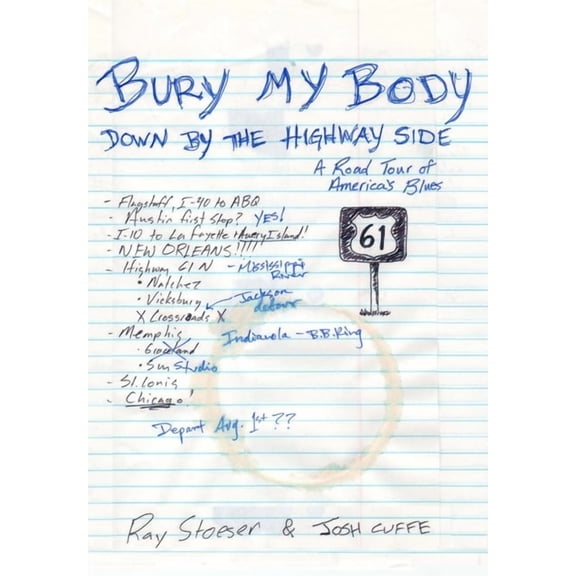 BURY MY BODY
DOWN BY THE HIGHWAY SIDE
A Road Tour of
America's Blues
- Flagstaff, I-40 to ABQ
- Austin first stop? YES!
- I-10 to La Fayette + Avery Island!
- NEW ORLEANS!!!!!
- Highway 61 N - Mississippi
River
• Natchez
• Vicksburg
Jackson
detour
X Crossroads X
- Memphis
Indianola - B.B. King
• Graceland
• Sun Studio
- St. Louis
- Chicago!
Depart Aug. 1st ??
61
Ray Stoeser & JOSH CUFFE